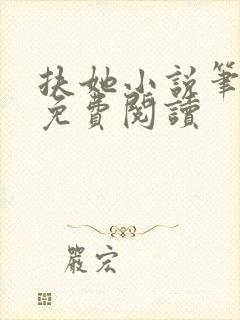 扶她小說筆
免費閱讀
嚴宏